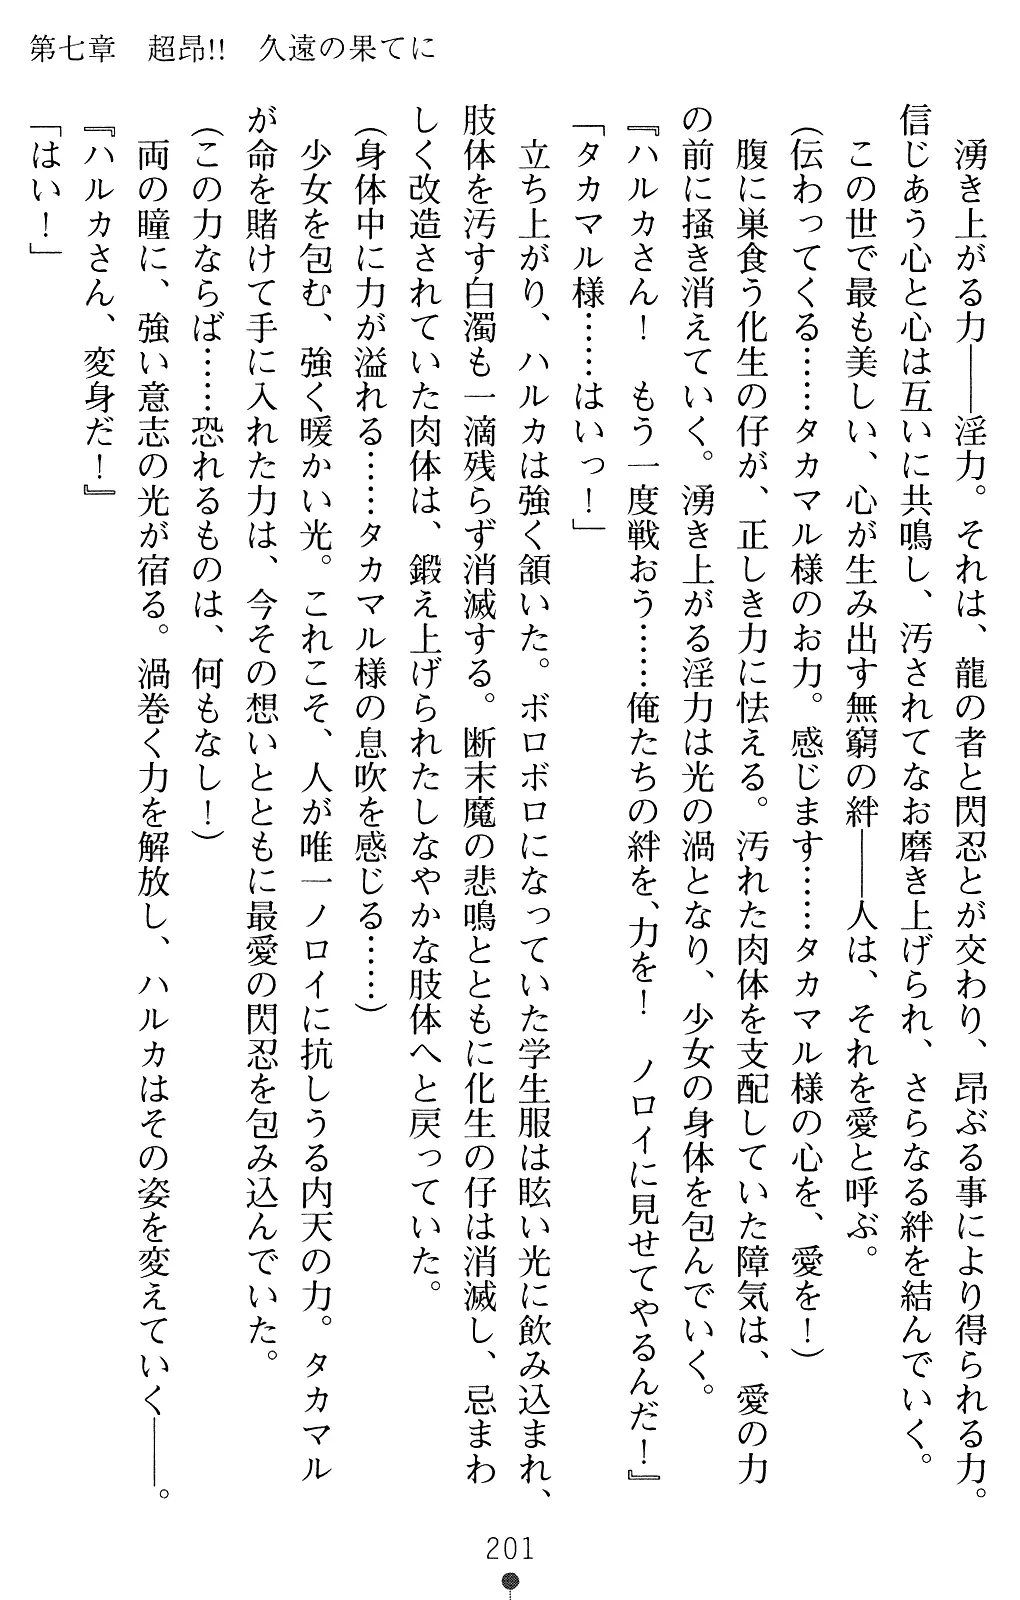 第七章　超昂!!　久遠の果てに
　湧き上がる力――淫力。それは、龍の者と閃忍とが交わり、昂ぶる事により得られる力。
信じあう心と心は互いに共鳴し、汚されてなお磨き上げられ、さらなる絆を結んでいく。
　この世で最も美しい、心が生み出す無窮の絆――人は、それを愛と呼ぶ。
（伝わってくる……タカマル様のお力。感じます……タカマル様の心を、愛を！）
　腹に巣食う化生の仔が、正しき力に怯える。汚れた肉体を支配していた障気は、愛の力
の前に掻き消えていく。湧き上がる淫力は光の渦となり、少女の身体を包んでいく。
『ハルカさん！　もう一度戦おう……俺たちの絆を、力を！　ノロイに見せてやるんだ！』
「タカマル様……はいっ！」
　立ち上がり、ハルカは強く頷いた。ボロボロになっていた学生服は眩い光に飲み込まれ、
肢体を汚す白濁も一滴残らず消滅する。断末魔の悲鳴とともに化生の仔は消滅し、忌まわ
しく改造されていた肉体は、鍛え上げられたしなやかな肢体へと戻っていた。
（身体中に力が溢れる……タカマル様の息吹を感じる……）
　少女を包む、強く暖かい光。これこそ、人が唯一ノロイに抗しうる内天の力。タカマル
が命を賭けて手に入れた力は、今その想いとともに最愛の閃忍を包み込んでいた。
（この力ならば……恐れるものは、何もなし！）
　両の瞳に、強い意志の光が宿る。渦巻く力を解放し、ハルカはその姿を変えていく――。
『ハルカさん、変身だ！』
「はい！」
201